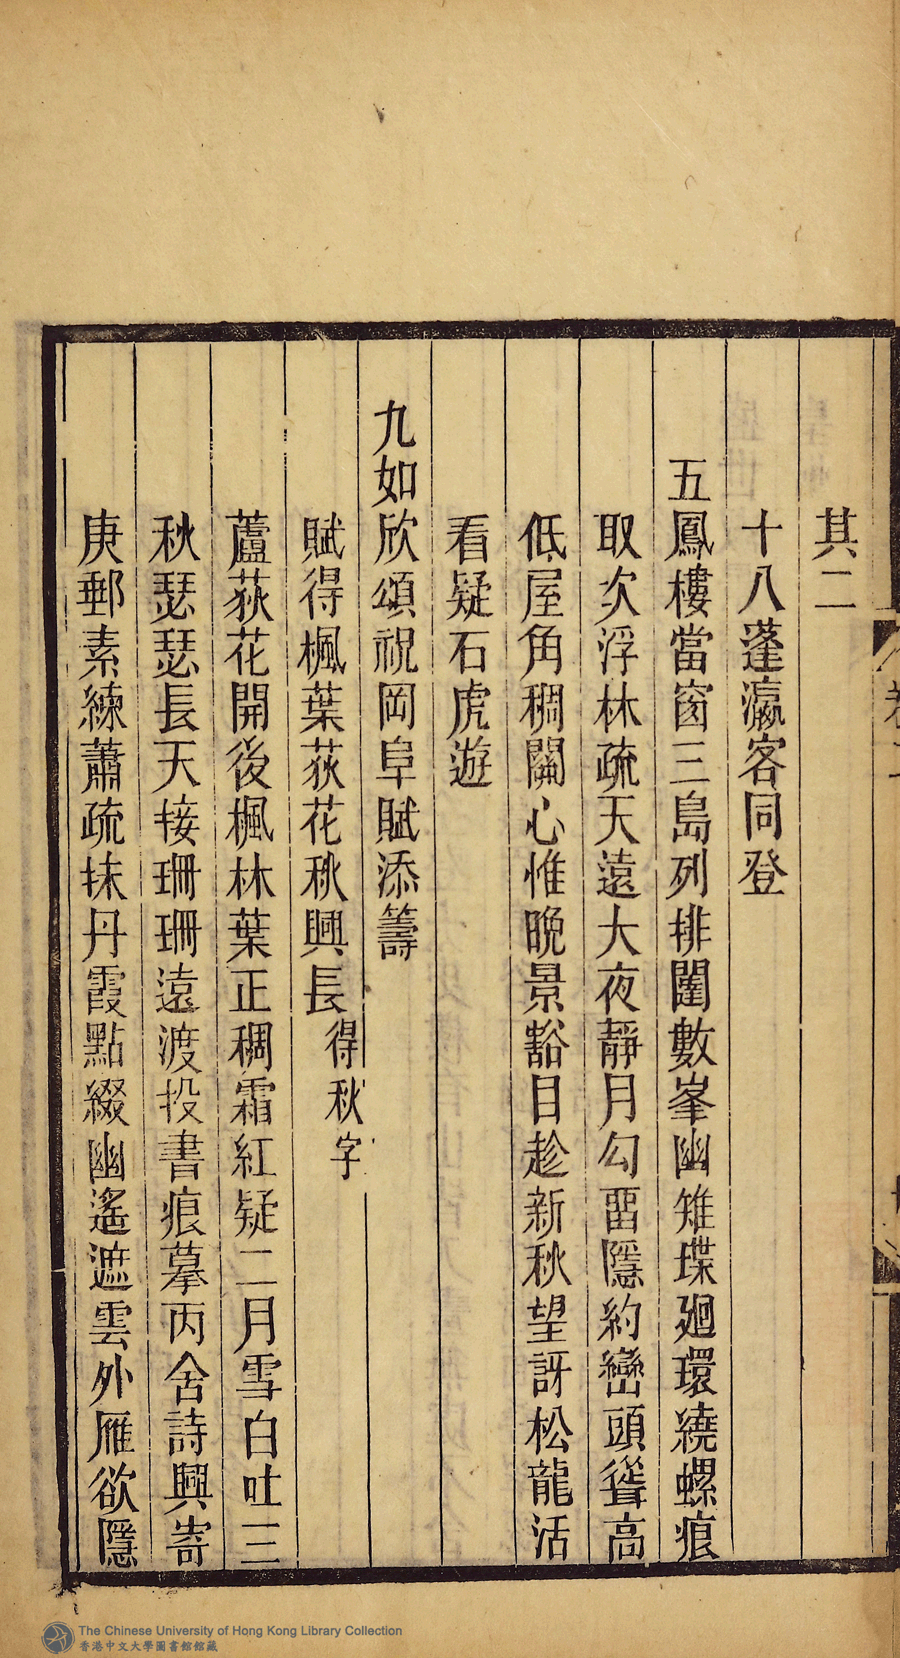 其二
十八蓬瀛客同登
五鳳樓當窗三島列排闥數峯幽雉堞廻環繞螺痕
取次浮林疏天遠大夜靜月勾畱隱約巒頭聳高
低屋角稠關心惟晩景豁目趁新秋望訝松龍活
看疑石虎遊
九如欣頌祝岡阜賦添籌
賦得楓葉荻花秋興長得秋字
蘆荻花開後楓林葉正稠霜紅疑二月雪白吐三
秋瑟瑟長天接珊珊遠渡投書痕摹丙舍詩興寄
庚郵素練蕭疏抹丹霞點綴幽遙遮雲外雁欲隱
The Chinese University of Hong Kong Library Collection
香港中文大學圖書館館藏